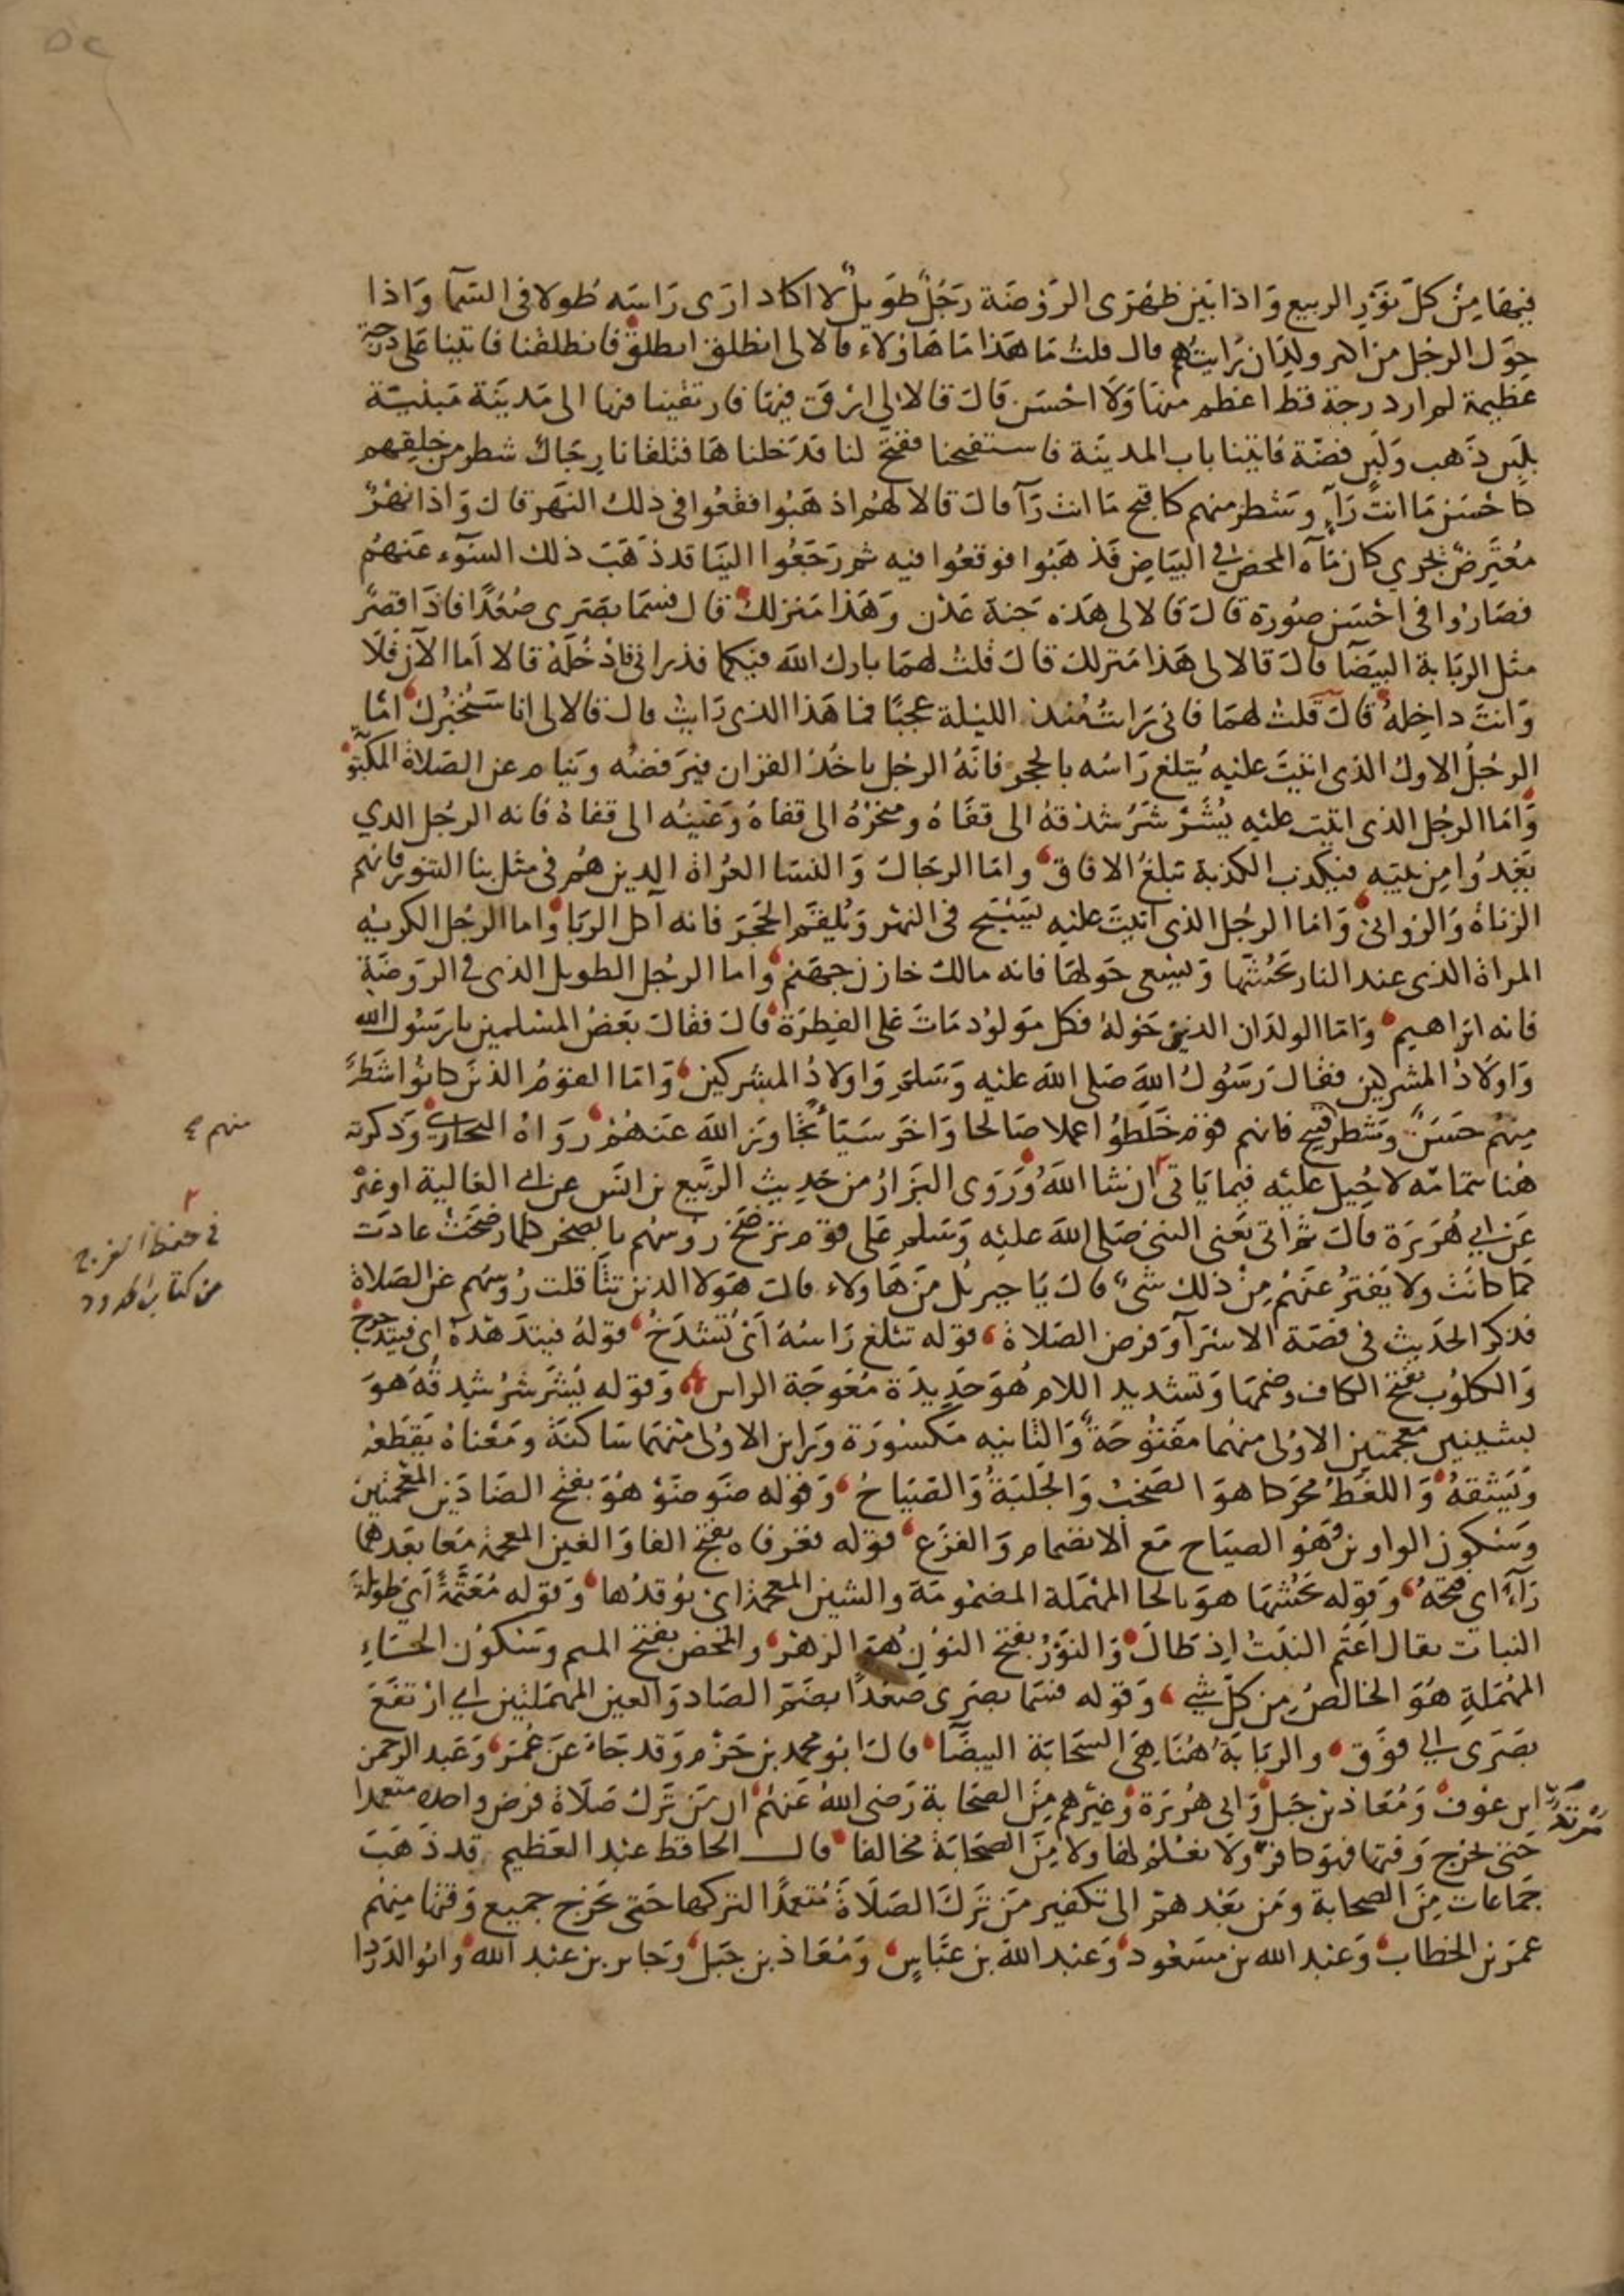 فيها من كل نور الربيع واذا بين ظهرى الروضة رجل طويل لا اكاد ارى راسه طولا فى السما واذا
حول الرجل من اكثر ولدان رايتهم قال قلت ما هذا ما هاؤلاء قالا لى انطلق انطلق فانطلقنا فاتينا على دوحة
عظيمة لم ار دوحة قط اعظم منها ولا احسن قال قالا لى ارق فيها فارتقينا فيها الى مدينة مبنية
بلبن ذهب ولبن فضة فاتينا باب المدينة فاستفتحنا ففتح لنا فدخلناها فتلقانا رجال شطر من خلقهم
كاحسن ما انت رآءٍ وشطر منهم كاقبح ما انت رآ قال قالا لهم اذهبوا فقعوا فى ذلك النهر قال واذا نهر
معترض يجرى كان مآه المحض فى البياض فذهبوا فوقعوا فيه ثم رجعوا الينا قد ذهب ذلك السوء عنهم
فصاروا فى احسن صورة قال قالا لى هذه جنة عدن وهذا منزلك قال فسما بصرى صعدا فاذا قصر
مثل الربابة البيضا قال قالا لى هذا منزلك قال قلت لهما بارك الله فيكما فذرانى فادخله قالا اما الآن فلا
وانت داخله قال قلت لهما فانى رايت منذ الليلة عجبا فما هذا الذى رايت قال قالا لى انا سنخبرك اما
الرجل الاول الذى اتيت عليه يثلغ راسه بالحجر فانه الرجل ياخذ القران فيرفضه وينام عن الصلاة المكتوبة
واما الرجل الذى اتيت عليه يشرشر شدقه الى قفاه ومنخره الى قفاه وعينه الى قفاه فانه الرجل الذي
يغدوا من بيته فيكذب الكذبة تبلغ الافاق واما الرجال والنسا العراة الذين هم فى مثل بنا التنور فانهم
الزناة والزوانى واما الرجل الذى اتيت عليه يسبح فى النهر ويلقم الحجر فانه آكل الربا واما الرجل الكريه
المراة الذى عند النار يحشها ويسعى حولها فانه مالك خازن جهنم واما الرجل الطويل الذى فى الروضة
فانه ابراهيم واما الولدان الذين حوله فكل مولود مات على الفطرة قال فقال بعض المسلمين يا رسول الله
واولاد المشركين فقال رسول الله صلى الله عليه وسلم واولاد المشركين واما القوم الذين كانوا شطر
منهم حسن وشطر قبيح فانهم قوم خلطوا عملا صالحا واخر سيئا تجاوز الله عنهم رواه البخارى وذكرته
منهم صح
هنا بتمامه لاحيل عليه فيما ياتى ان شا الله وروى البزار من حديث الربيع بن انس عن ابى العالية او غيره
٢ فى حفظ الفرج
من كتاب الحدود
عن ابي هريرة قال ثم اتى يعنى النبى صلى الله عليه وسلم على قوم ترضخ روسهم بالصخر كلما رضخت عادت
كما كانت ولا يفتر عنهم من ذلك شى قال يا جبريل من هاولاء قال هولا الذين تتثاقلت روسهم عن الصلاة
فذكر الحديث فى قصة الاسرآ وفرض الصلاة قوله تثلغ راسه اى تشدخ قوله فيتدهده اى فيتدحرج
والكلوب بفتح الكاف وضمها وتشديد اللام هو حديدة معوجة الراس وقوله يشرشر شدقه هو
بشينين معجمتين الاولى منهما مفتوحة والثانيه مكسورة وراين الاولى منهما ساكنة ومعناه يقطعه
ويشقه واللغط محركا هو الصخب والجلبة والصياح وقوله ضوضوْ هو بفتح الضادين المعجمتين
وسكون الواوين وهو الصياح مع الانضمام والفزع قوله فغرفاه بفتح الفا والغين المعجمة معا بعدهما
رآءٌ اى فتحه وقوله يحشها هو بالحا المهملة المضمومة والشين المعجمة اى يوقدها وقوله معتمة اى طويلة
النبات يقال اعتم النبت اذ طال والنور بفتح النون هو الزهر والمحض بفتح الميم وسكون الحاء
المهملة هو الخالص من كل شي وقوله فسما بصرى صعدا بضم الصاد والعين المهملتين اى ارتفع
بصرى الى فوق والربابة هنا هى السحابة البيضا قال ابو محمد بن حزم وقد جاء عن عمر وعبد الرحمن
ابن عوف ومعاذ بن جبل وابى هريرة وغيرهم من الصحابة رضى الله عنهم ان من ترك صلاة فرض واحدة متعمدا
حتى يخرج وقتها فهو كافر مرتد ولا نعلم لها ولا من الصحابة مخالفا قال الحافظ عبد العظيم قد ذهب
جماعات من الصحابة ومن بعدهم الى تكفير من ترك الصلاة متعمدا لتركها حتى يخرج جميع وقتها منهم
عمر بن الخطاب وعبد الله بن مسعود وعبد الله بن عباس ومعاذ بن جبل وجابر بن عبد الله وابو الدردا